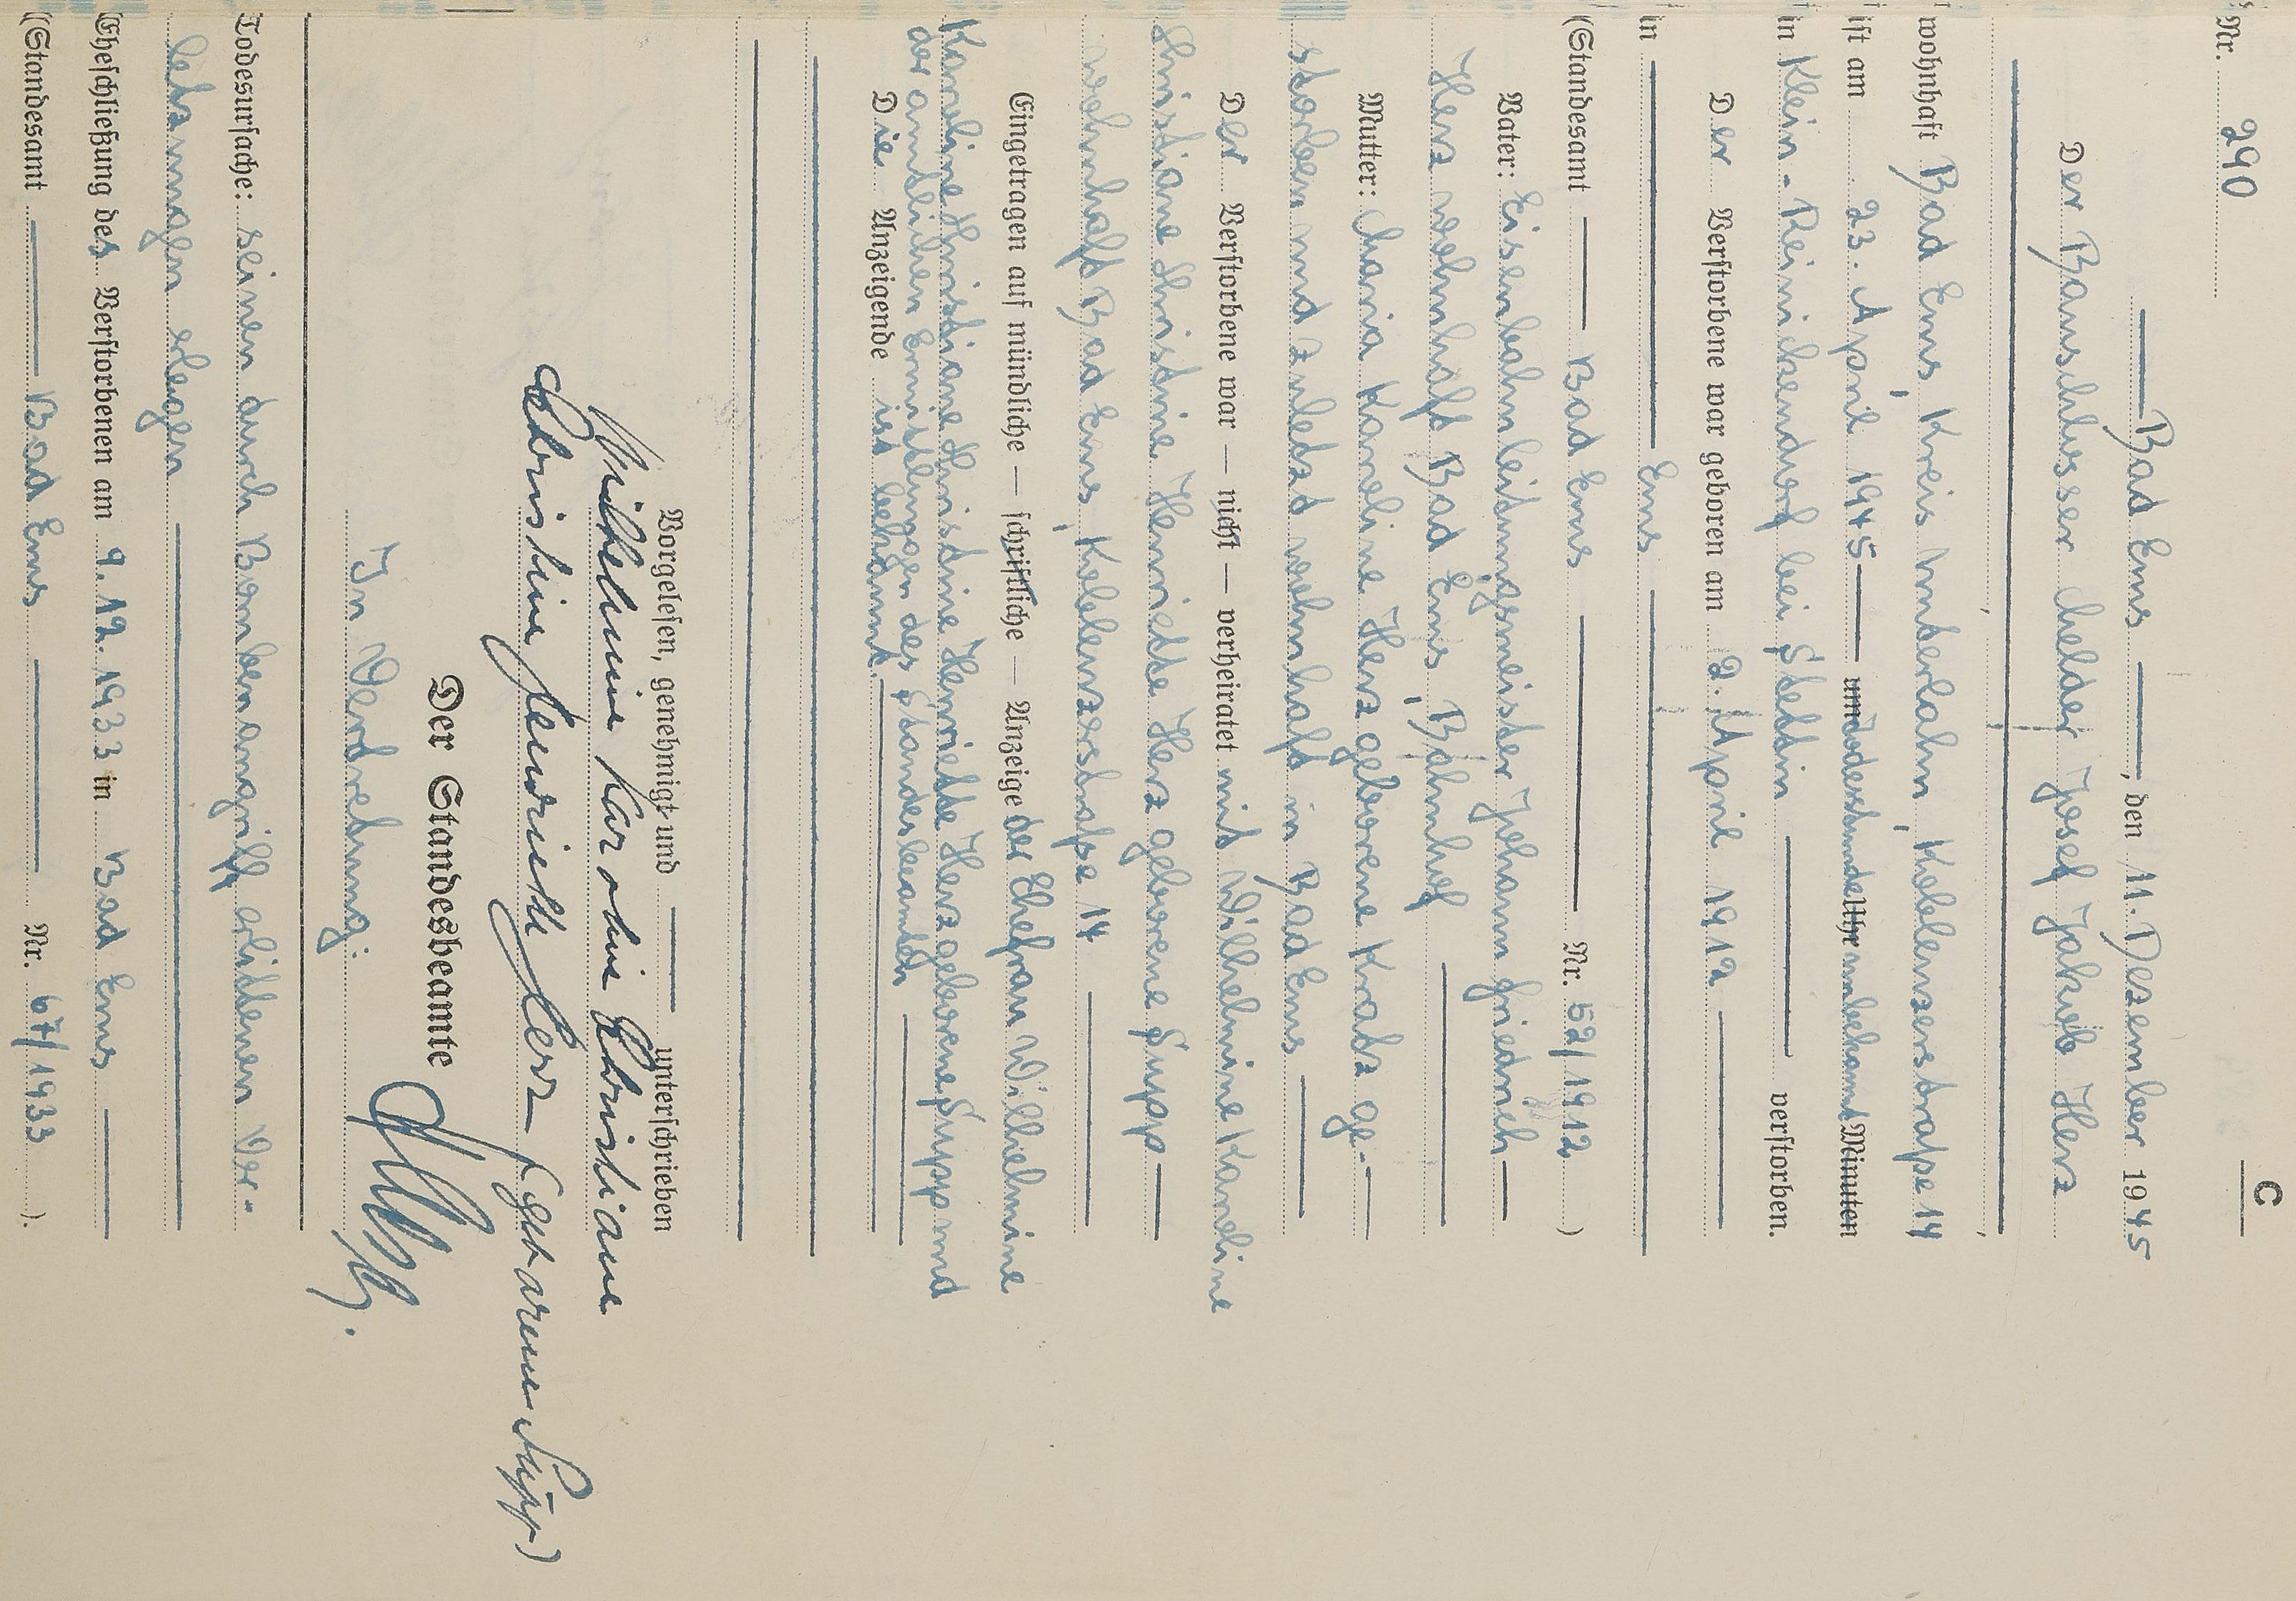 C
Nr. 290
Bad Ems, den 11. Dezember 1945
Der Bauschlosser Josef Jakob Herz
wohnhaft Bad Ems, Kreis Unterlahn, Koblenzerstraße 14
ist am 23. April 1945 um Todesstunde Uhr unbekannt Minuten
in Klein-Reinichendorf bei Stettin verstorben.
Der Verstorbene war geboren am 2. April 1912
in Ems
(Standesamt Bad Ems Nr. 52/1912)
Vater: Eisenbahnleitungsmeister Johann Friedrich
Herz wohnhaft Bad Ems, Bahnhof
Mutter: Maria Karoline Herz geborene Kratz ge-
storben und zuletzt wohnhaft in Bad Ems
Der Verstorbene war — nicht — verheiratet mit Wilhelmine Karoline
Christiane Christine Henriette Herz geborene Supp
wohnhaft Bad Ems, Koblenzerstraße 14
Eingetragen auf mündliche — schriftliche — Anzeige der Ehefrau Wilhelmine
Karoline Christiane Christine Henriette Herz geborene Supp und
der amtlichen Ermittlungen des Standesbeamten
Die Anzeigende ist bekannt.
Vorgelesen, genehmigt und unterschrieben
Wilhelmine Karoline Christiane
Christine Henriette Herz (geborene Supp)
Der Standesbeamte
In Vertretung:
Todesursache: seinen durch Bombenangriff erlittenen Ver-
letzungen erlegen
Eheschließung des Verstorbenen am 9. 12. 1933 in Bad Ems
(Standesamt Bad Ems Nr. 67/1933).